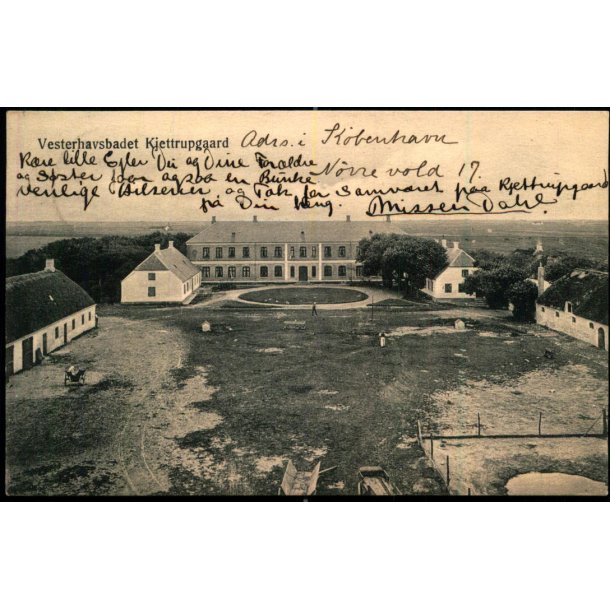 Vesterhavsbadet Kjettrupgaard
Adrs. i København
Nørre vold 17.
Kære lille Du og Dine Forældre
og Søster faar ogsaa en Bunke
venlige Hilsener og Tak for Samværet paa Kjettrupgaard
Missen Dahl.